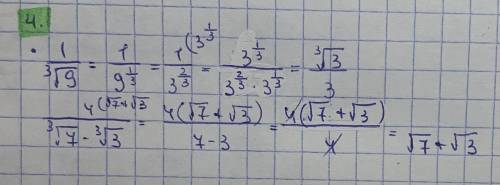 4.
• 1/∛9 = 1/9^(1/3) = 1(3^(1/3)/3^(2/3) = 3^(1/3)/(3^(2/3) · 3^(1/3)) = ∛3/3
4(√7+√3/(∛7 - ∛3) = 4(√7 + √3)/(7 - 3) = 4(√7 + √3)/4 = √7 + √3